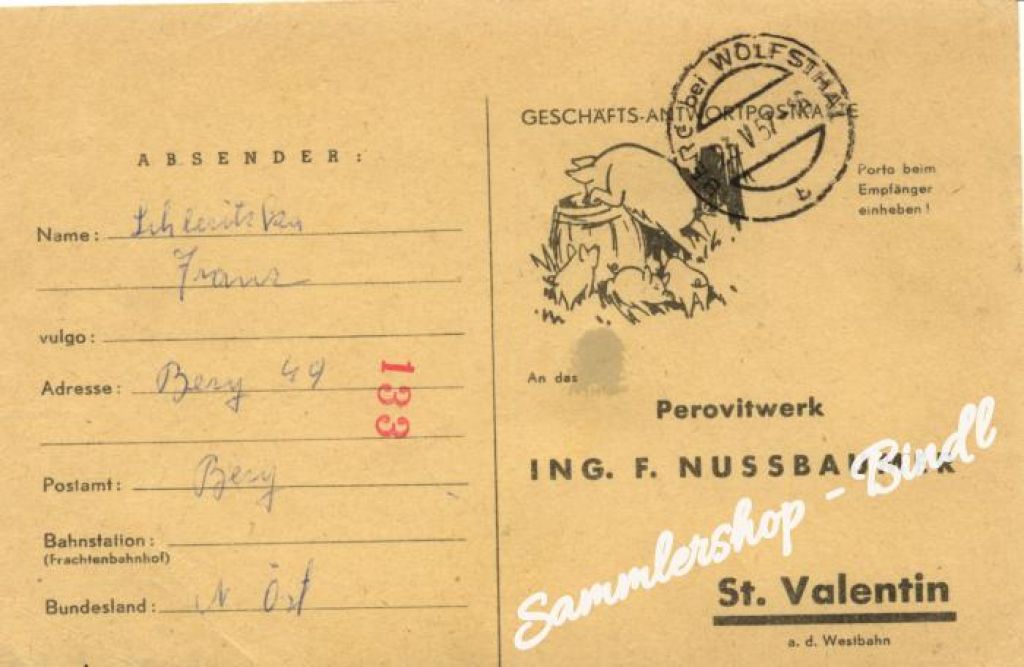 ABSENDER:
Name:
Franz
vulgo:
Adresse: Berg 49
133
Postamt: Berg
Bahnstation:
(Frachtenbahnhof)
Bundesland: N Öst
BERG bei WOLFSTHAL
V 57
GESCHÄFTS-ANTWORTPOSTKARTE
Porto beim
Empfänger
einheben!
An das
Perovitwerk
ING. F. NUSSBAUMER
St. Valentin
a. d. Westbahn
Sammlershop - Bindl